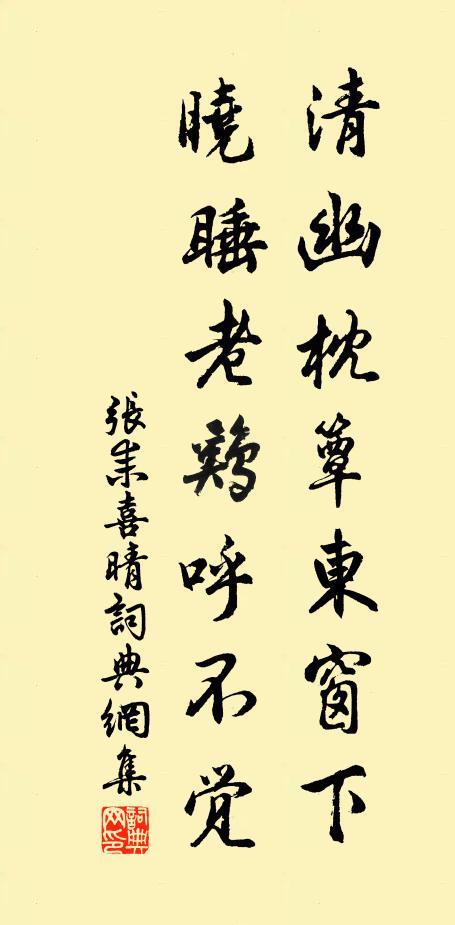 清幽枕簟東窗下
曉睡老鷄呼不觉
張耒喜晴詞典網集
詞典网印